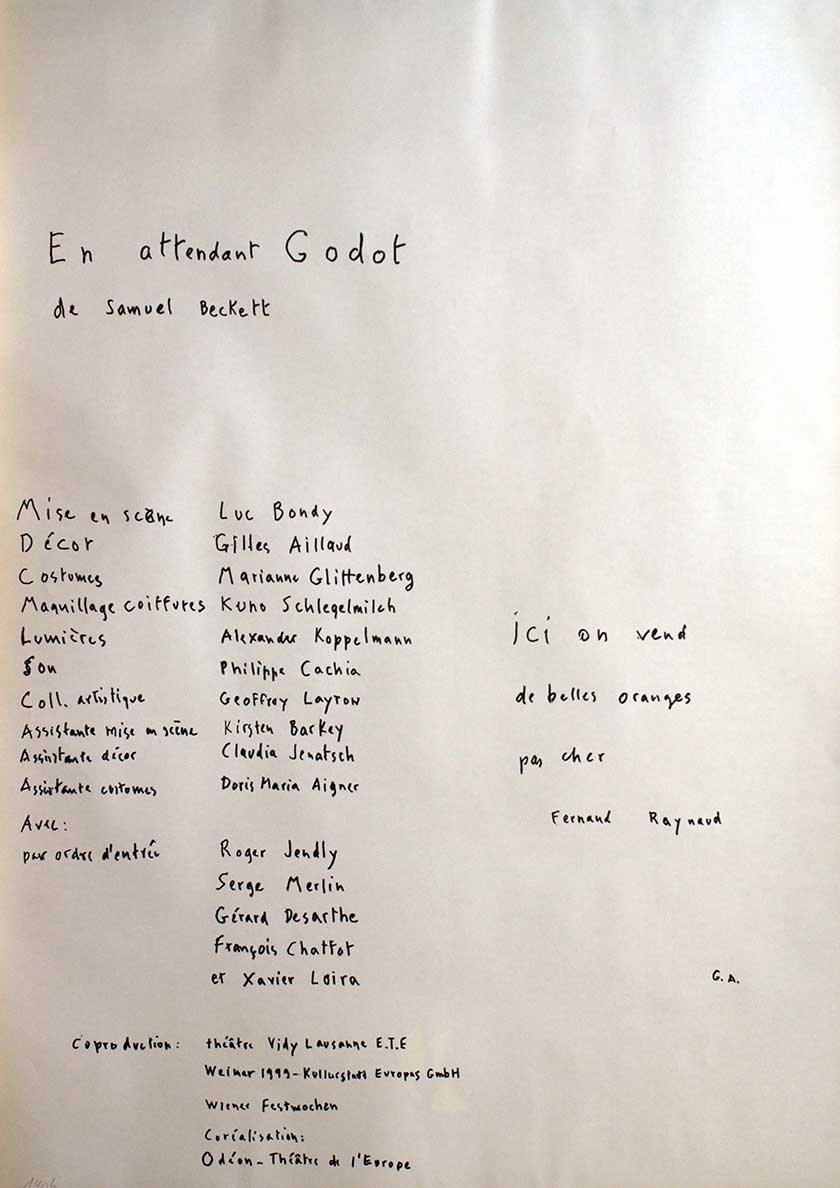 En attendant Godot
de Samuel Beckett
Mise en scène Luc Bondy
Décor Gilles Aillaud
Costumes Marianne Glittenberg
Maquillage coiffures Kuno Schlegelmilch
Lumières Alexander Koppelmann
Son Philippe Cachia
Coll. artistique Geoffrey Layton
Assistante mise en scène Kirsten Barkey
Assistante décor Claudia Jenatsch
Assistante costumes Doris Maria Aigner
Avec:
par ordre d'entrée Roger Jendly
Serge Merlin
Gérard Desarthe
François Chattot
et Xavier Loira
ici on vend
de belles oranges
pas cher
Fernand Raynaud
G.A.
Coproduction: théâtre Vidy Lausanne E.T.E
Weimar 1999-Kulturstadt Europas GmbH
Wiener Festwochen
Coréalisation:
Odéon-Théâtre de l'Europe